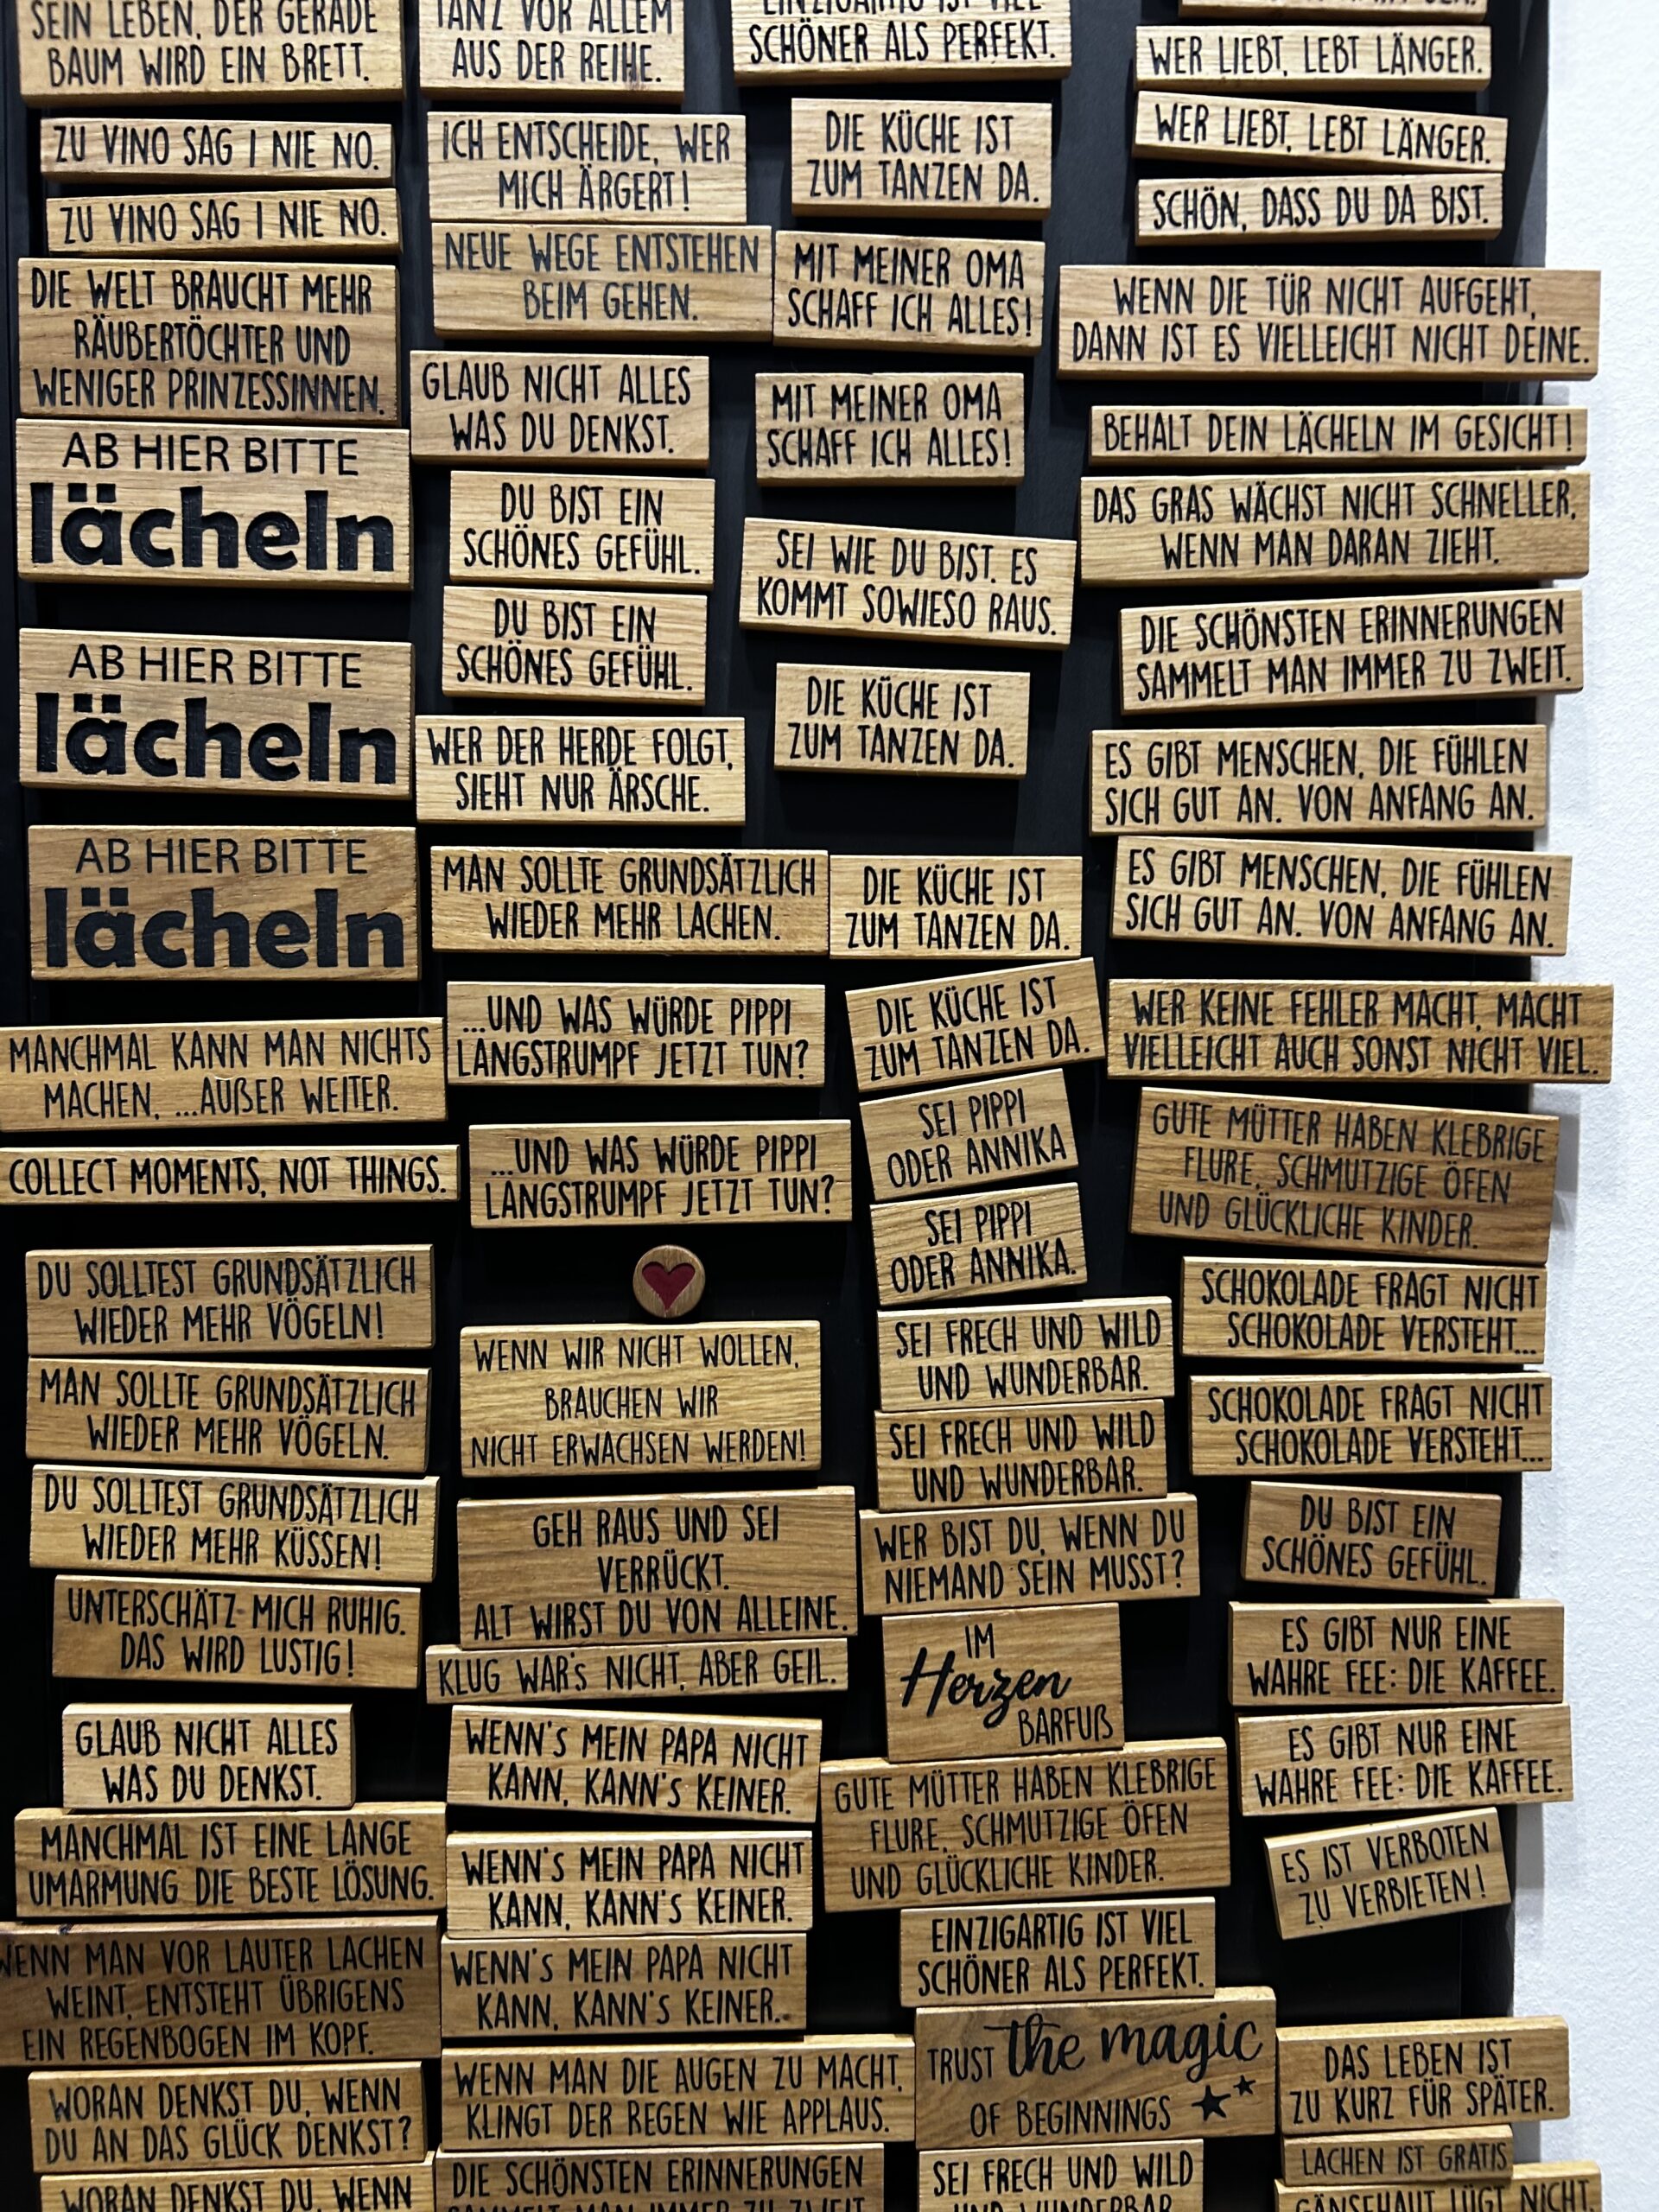 SEIN LEBEN, DER GERADE
BAUM WIRD EIN BRETT.
ZU VINO SAG I NIE NO.
ZU VINO SAG I NIE NO.
DIE WELT BRAUCHT MEHR
RÄUBERTÖCHTER UND
WENIGER PRINZESSINNEN.
AB HIER BITTE
lächeln
AB HIER BITTE
lächeln
AB HIER BITTE
lächeln
MANCHMAL KANN MAN NICHTS
MACHEN, ...AUßER WEITER.
COLLECT MOMENTS, NOT THINGS.
DU SOLLTEST GRUNDSÄTZLICH
WIEDER MEHR VÖGELN!
MAN SOLLTE GRUNDSÄTZLICH
WIEDER MEHR VÖGELN.
DU SOLLTEST GRUNDSÄTZLICH
WIEDER MEHR KÜSSEN!
UNTERSCHÄTZ MICH RUHIG.
DAS WIRD LUSTIG!
GLAUB NICHT ALLES
WAS DU DENKST.
MANCHMAL IST EINE LANGE
UMARMUNG DIE BESTE LÖSUNG.
WENN MAN VOR LAUTER LACHEN
WEINT, ENTSTEHT ÜBRIGENS
EIN REGENBOGEN IM KOPF.
WORAN DENKST DU, WENN
DU AN DAS GLÜCK DENKST?
WORAN DENKST DU, WENN
TANZ VOR ALLEM
AUS DER REIHE.
ICH ENTSCHEIDE, WER
MICH ÄRGERT!
NEUE WEGE ENTSTEHEN
BEIM GEHEN.
GLAUB NICHT ALLES
WAS DU DENKST.
DU BIST EIN
SCHÖNES GEFÜHL.
DU BIST EIN
SCHÖNES GEFÜHL.
WER DER HERDE FOLGT,
SIEHT NUR ÄRSCHE.
MAN SOLLTE GRUNDSÄTZLICH
WIEDER MEHR LACHEN.
...UND WAS WÜRDE PIPPI
LANGSTRUMPF JETZT TUN?
...UND WAS WÜRDE PIPPI
LANGSTRUMPF JETZT TUN?
WENN WIR NICHT WOLLEN,
BRAUCHEN WIR
NICHT ERWACHSEN WERDEN!
GEH RAUS UND SEI
VERRÜCKT.
ALT WIRST DU VON ALLEINE.
KLUG WAR's NICHT, ABER GEIL.
WENN'S MEIN PAPA NICHT
KANN, KANN'S KEINER.
WENN'S MEIN PAPA NICHT
KANN, KANN'S KEINER.
WENN'S MEIN PAPA NICHT
KANN, KANN'S KEINER.
WENN MAN DIE AUGEN ZU MACHT,
KLINGT DER REGEN WIE APPLAUS.
DIE SCHÖNSTEN ERINNERUNGEN
SAMMELT MAN IMMER ZU ZWEIT.
EINZIGARTIG IST VIEL
SCHÖNER ALS PERFEKT.
DIE KÜCHE IST
ZUM TANZEN DA.
MIT MEINER OMA
SCHAFF ICH ALLES!
MIT MEINER OMA
SCHAFF ICH ALLES!
SEI WIE DU BIST. ES
KOMMT SOWIESO RAUS.
DIE KÜCHE IST
ZUM TANZEN DA.
DIE KÜCHE IST
ZUM TANZEN DA.
DIE KÜCHE IST
ZUM TANZEN DA.
SEI PIPPI
ODER ANNIKA
SEI PIPPI
ODER ANNIKA.
SEI FRECH UND WILD
UND WUNDERBAR.
SEI FRECH UND WILD
UND WUNDERBAR.
WER BIST DU, WENN DU
NIEMAND SEIN MUSST?
IM
Herzen
BARFUß
GUTE MÜTTER HABEN KLEBRIGE
FLURE, SCHMUTZIGE ÖFEN
UND GLÜCKLICHE KINDER.
EINZIGARTIG IST VIEL
SCHÖNER ALS PERFEKT.
TRUST the magic
OF BEGINNINGS
SEI FRECH UND WILD
UND WUNDERBAR
WER LIEBT, LEBT LÄNGER.
WER LIEBT, LEBT LÄNGER.
SCHÖN, DASS DU DA BIST.
WENN DIE TÜR NICHT AUFGEHT,
DANN IST ES VIELLEICHT NICHT DEINE.
BEHALT DEIN LÄCHELN IM GESICHT!
DAS GRAS WÄCHST NICHT SCHNELLER,
WENN MAN DARAN ZIEHT.
DIE SCHÖNSTEN ERINNERUNGEN
SAMMELT MAN IMMER ZU ZWEIT.
ES GIBT MENSCHEN, DIE FÜHLEN
SICH GUT AN. VON ANFANG AN.
ES GIBT MENSCHEN, DIE FÜHLEN
SICH GUT AN. VON ANFANG AN.
WER KEINE FEHLER MACHT, MACHT
VIELLEICHT AUCH SONST NICHT VIEL.
GUTE MÜTTER HABEN KLEBRIGE
FLURE, SCHMUTZIGE ÖFEN
UND GLÜCKLICHE KINDER.
SCHOKOLADE FRAGT NICHT
SCHOKOLADE VERSTEHT...
SCHOKOLADE FRAGT NICHT
SCHOKOLADE VERSTEHT...
DU BIST EIN
SCHÖNES GEFÜHL.
ES GIBT NUR EINE
WAHRE FEE: DIE KAFFEE.
ES GIBT NUR EINE
WAHRE FEE: DIE KAFFEE.
ES IST VERBOTEN
ZU VERBIETEN!
DAS LEBEN IST
ZU KURZ FÜR SPÄTER.
LACHEN IST GRATIS
GÄNSEHAUT LÜGT NICHT